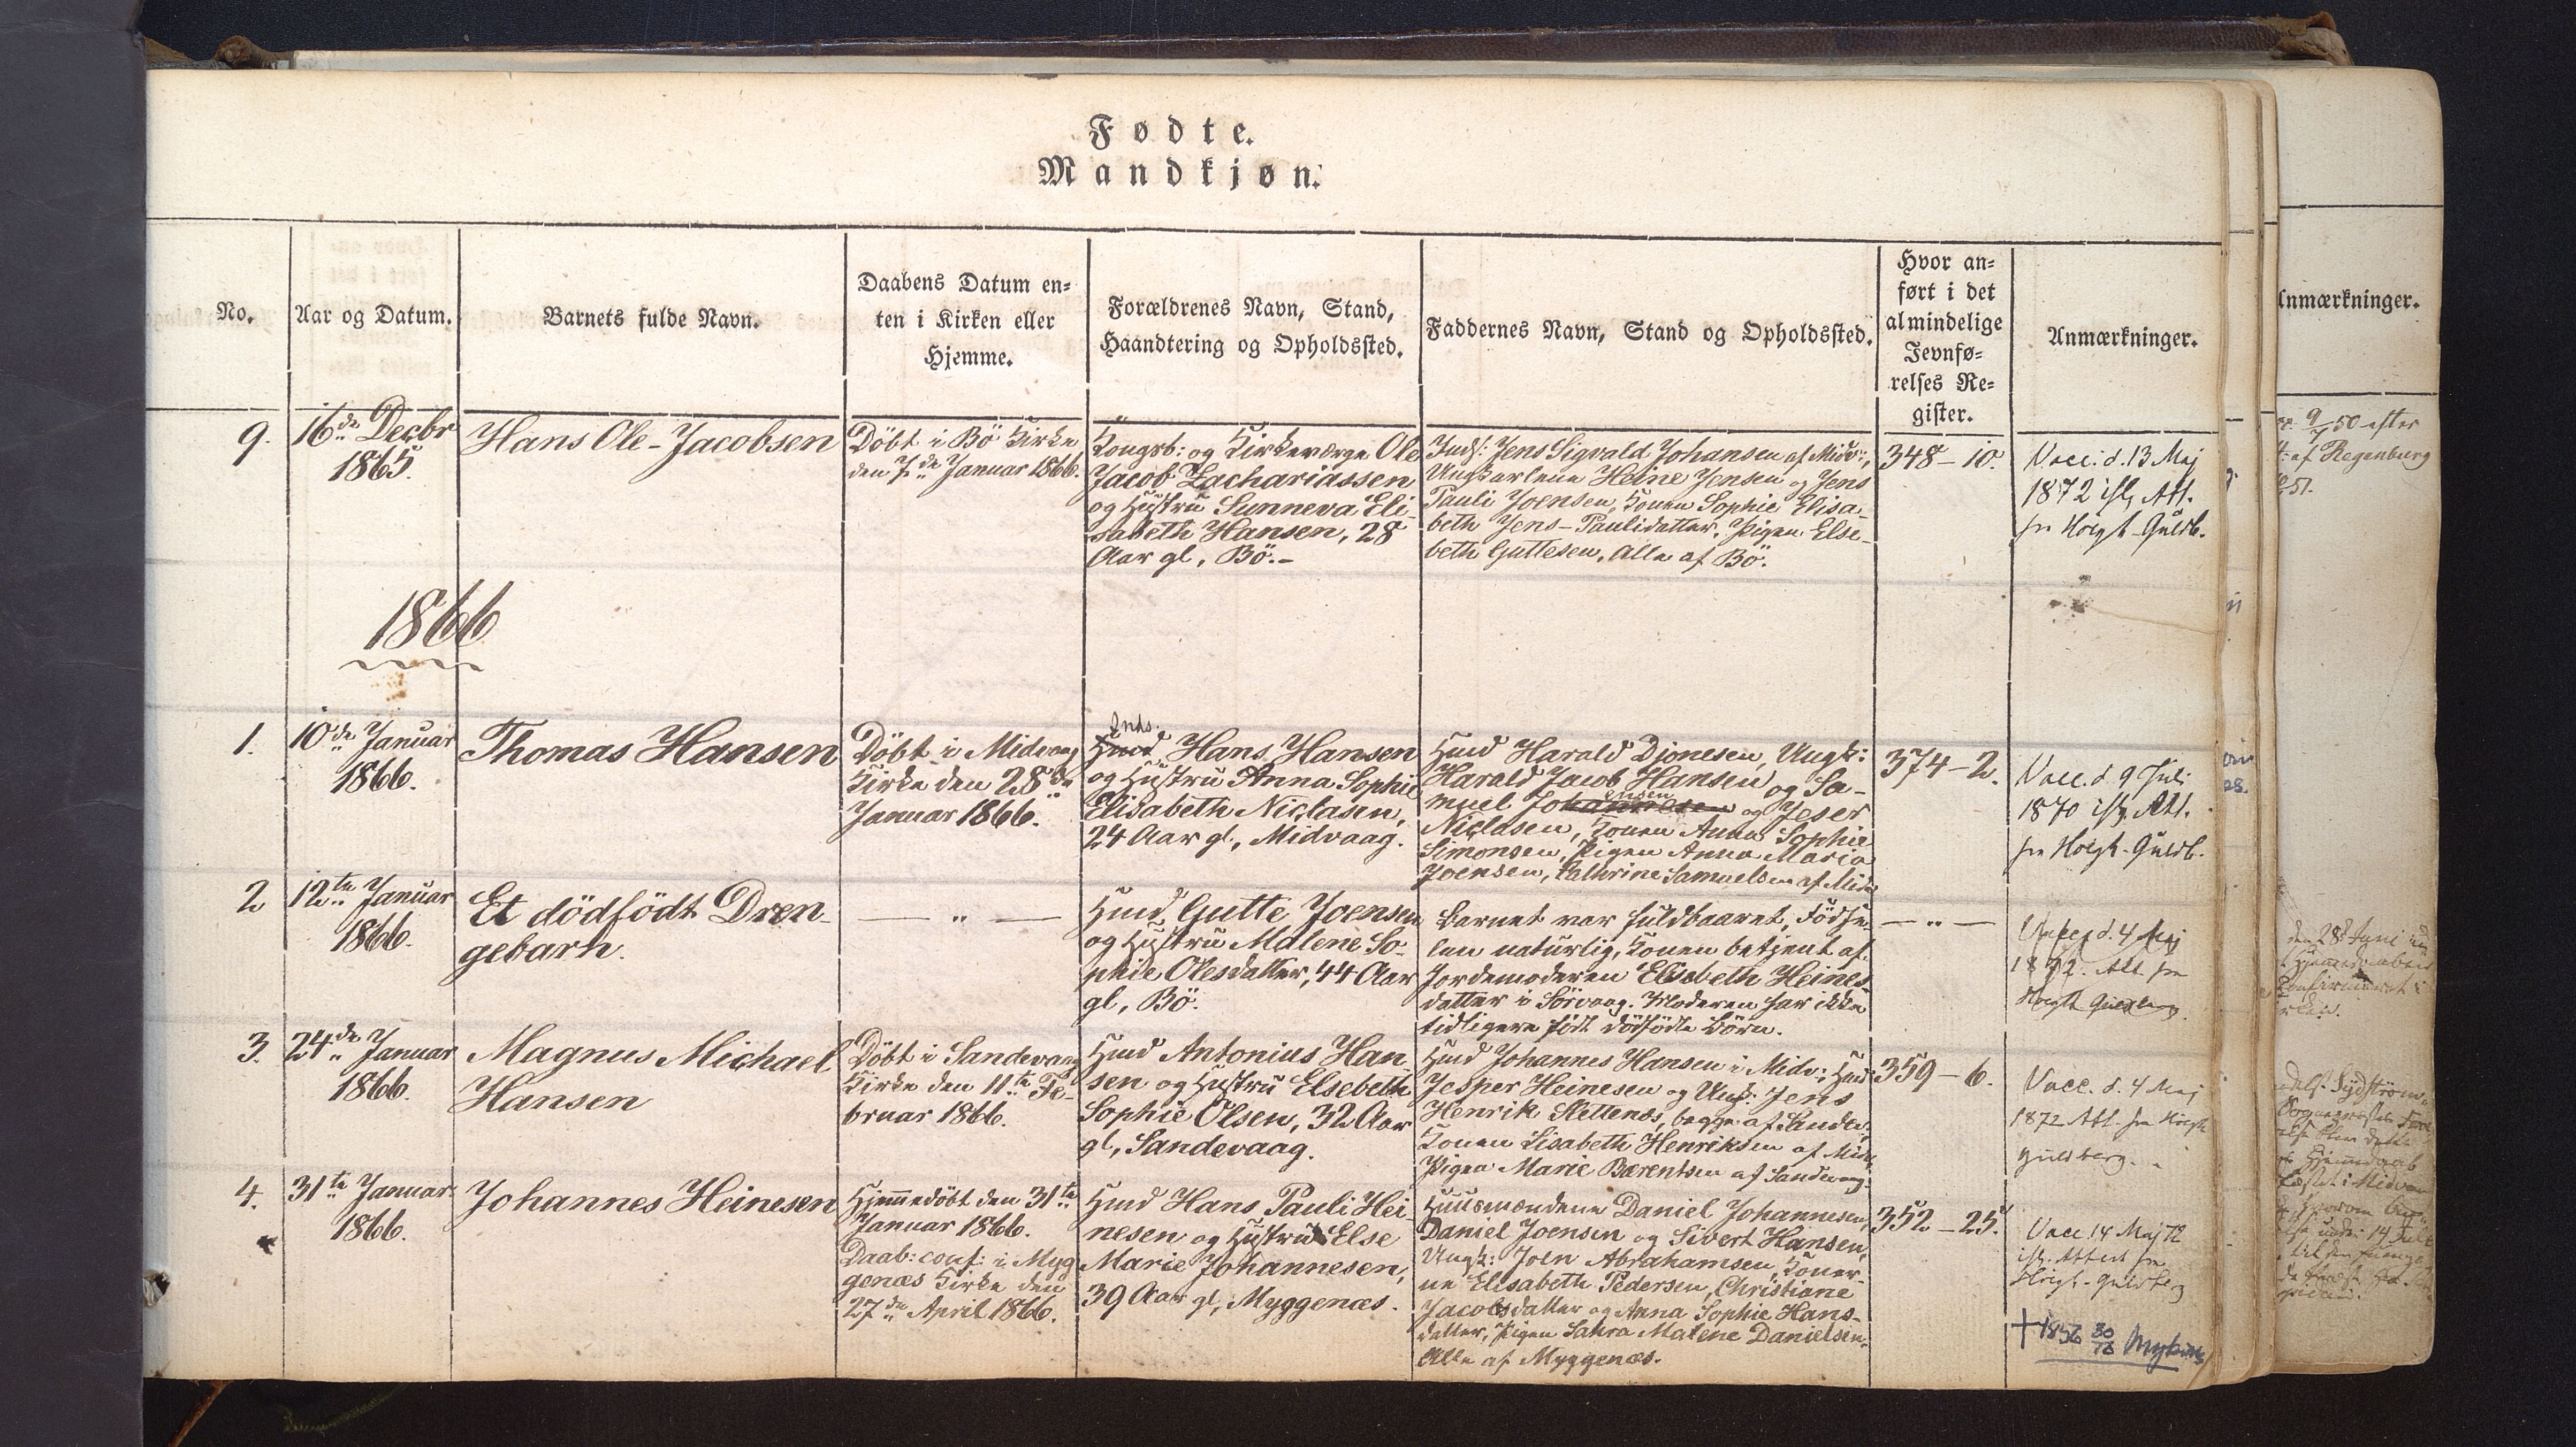 Fødte.
Mandkjøn.
No.
Aar og Datum.
Barnets fulde Navn.
Daabens Datum en-
ten i Kirken eller
Hjemme.
Forældrenes Navn, Stand,
Haandtering og Opholdssted.
Faddernes Navn, Stand og Opholdssted.
Hvor an-
ført i det
almindelige
Jevnfø-
relses Re-
gister.
Anmærkninger.
9.
16de Decbr
1865.
Hans Ole-Jacobsen
Döbt i Bö Kirke
den 7de Januar 1866.
Kongsb: og Kirkeværge Ole
Jacob Zachariassen
og Hustru Sunneva Eli-
sabeth Hansen, 28
Aar gl, Bö.-
Inds: Jens Sigvald Johansen af Midv:,
Ungkarlene Heine Jensen og Jens
Pauli Joensen, Konen Sophie Elisa-
beth Jens-Paulidatter, Pigen Else-
beth Guttesen, Alle af Bö.
348-10.
Vacc: d. 13 Maj
1872 ifl. Att.
fra Hoegh-Guldb.
1866
1.
10de Januar
1866.
Thomas Hansen
Döbt i Midvaag
Kirke den 28de
Januar 1866.
Inds.
Huusd Hans Hansen
og Hustru Anna Sophie
Elisabeth Niclasen,
24 Aar gl, Midvaag.
Huusd Harald Djonesen, Ungk:
Harald Jacob Hansen og Sa-
muel Johannesen og Jeser
ensen
Niclasen, Konen Anna Sophie
Simonsen, Pigen Anna Maria
Joensen, Cathrine Samuelsen af Midv
374-2.
Vacc. d. 9 Juli
1870 ifl. Att.
fra Hoegh-Guldb.
2
12te Januar
1866.
Et dödfödt Dren-
gebarn.
— " —
Huusd Gutte Joensen
og Hustru Malene So-
phie Olesdatter, 44 Aar
gl, Bö.
Barnet var fuldbaaret, Födse-
len naturlig, Konen betjent af
Jordemoderen Elisabeth Heines-
datter i Sörvaag. Moderen har ikke
tidligere födt dödfödte Börn.
— " —
d. 4 Maj
1872. Att. fra
Hoegh Guldberg.
3.
24de Januar
1866.
Magnus Michael
Hansen
Döbt i Sandevaag
Kirke den 11te Fe-
bruar 1866.
Huusd Antonius Han-
sen og Hustru Elsebeth
Sophie Olsen, 32 Aar
gl, Sandevaag.
Huusd Johannes Hansen i Midv:, Huusd
Jesper Heinesen og Ungk: Jens
Henrik Slettenæs, begge af Sandev:
Konen Lisabeth Henriksen af Midv,
Pigen Marie Bærentsen af Sandevaag.
359-6.
Vacc. d. 4 Maj
1872 Att. fra Hoegh
Guldberg.
4.
31te Januar
1866.
Johannes Heinesen
Hjemmedöbt den 31te
Januar 1866.
Daab: conf: i Myg-
genæs Kirke den
27de April 1866.
Huusd Hans Pauli Hei-
nesen og Hustru Else
Marie Johannesen,
39 Aar gl, Myggenæs.
Huusmændene Daniel Johannesen,
Daniel Joensen og Sivert Hansen,
Ungk: Joen Abrahamsen, Koner-
ne Elisabeth Pedersen, Christiane
Jacobsdatter og Anna Sophie Hans-
datter, Pigen Sahra Malene Danielsen.
Alle af Myggenæs.
352-25.
Vacc 14 Maj 72
ifl. Attest fra
Hoegh-Guldberg
Anmærkninger.
9/7 50 efter
af Regenburg
den 28 Juni